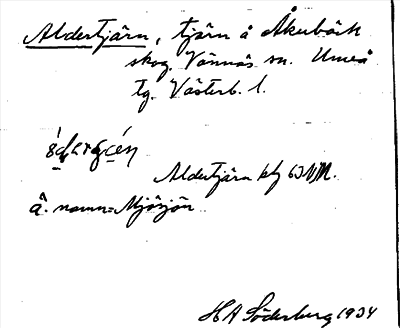 Aldertjärn, tjärn å Åkerbäck
skog. Vännäs sn. Umeå
tg. Västerb. l.
Aldertjärn bl 63 NV.
å. namn= Mjösjön
HA Söderberg 1934